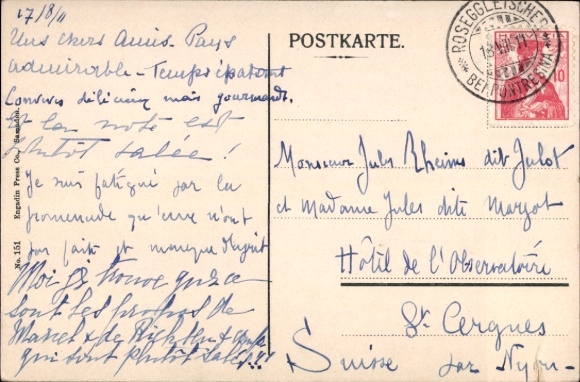 17/8/11
Mes chers Amis. Pays
admirable - Temps épatant
Convives délicieux mais gourmands.
Et la note est
plutôt salée!
Je suis fatigué par la
promenade qu'eux n'ont
pas faite et manque d'esprit
Moi je trouve que ce
sont les propos de
Marcel & de
qui sont plutôt salés!!!
No. 151 Engadin Press Co., Samaden.
POSTKARTE.
ROSEGGLETSCHER
18.VIII.11
BEI PONTRESINA
10
Monsieur Jules Rheims dit Julot
et Madame Jules dite Margot
Hôtel de l'Observatoire
St. Cergues
Suisse sur Nyon